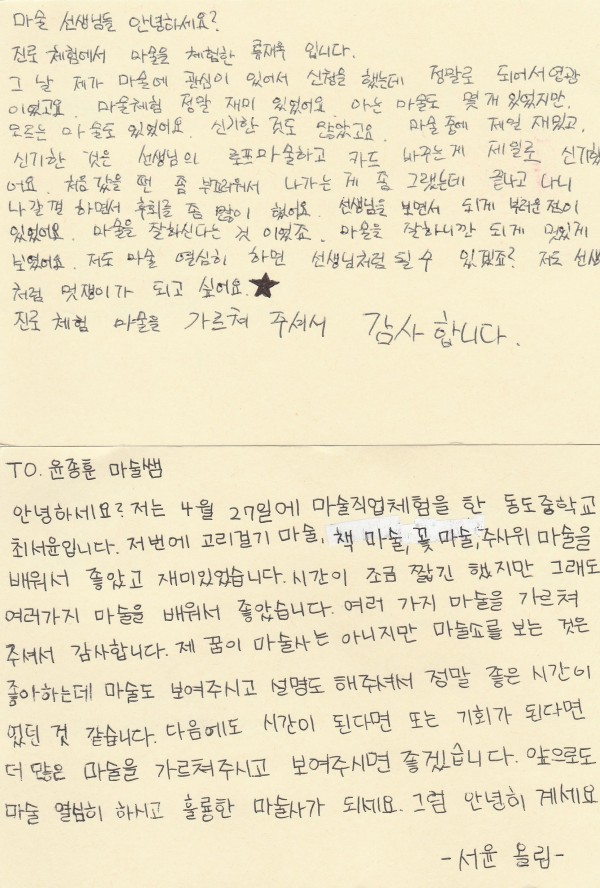 마술 선생님들 안녕하세요?
진로 체험에서 마술을 체험한 류재욱 입니다.
그 날 제가 마술에 관심이 있어서 신청을 했는데 정말로 되어서 영광
이였고요. 마술체험 정말 재미 있었어요 아는 마술도 몇개 있었지만.
모르는 마술도 있었어요. 신기한 것도 많았고요. 마술 중에 제일 재밌고,
신기한 것은 선생님의 로프마술하고 카드 바꾸는게 제일로 신기했
어요. 처음 갔을 땐 좀 부끄러워서 나가는 게 좀 그랬는데 끝나고 나니
나갈껄 하면서 후회를 좀 많이 했어요. 선생님을 보면서 되게 부러운 점이
있었어요. 마술을 잘하신다는 것 이였죠. 마술을 잘하니깐 되게 멋있게
보였어요. 저도 마술 열심히 하면 선생님처럼 될 수 있겠죠? 저도 선생
처럼 멋쟁이가 되고 싶어요. ★
진로 체험 마술을 가르쳐 주셔서 감사합니다.
TO. 윤종훈 마술쌤
안녕하세요? 저는 4월 27일에 마술직업체험을 한 동도중학교
최서윤입니다. 저번에 고리걸기 마술, 책 마술, 꽃 마술, 주사위 마술을
배워서 좋았고 재미있었습니다. 시간이 조금 짧긴 했지만 그래도
여러가지 마술을 배워서 좋았습니다. 여러 가지 마술을 가르쳐
주셔서 감사합니다. 제 꿈이 마술사는 아니지만 마술쇼를 보는 것은
좋아하는데 마술도 보여주시고 설명도 해주셔서 정말 좋은 시간이
었던 것 같습니다. 다음에도 시간이 된다면 또는 기회가 된다면
더 많은 마술을 가르쳐주시고 보여주시면 좋겠습니다. 앞으로도
마술 열심히 하시고 훌륭한 마술사가 되세요. 그럼 안녕히 계세요
-서윤 올림-